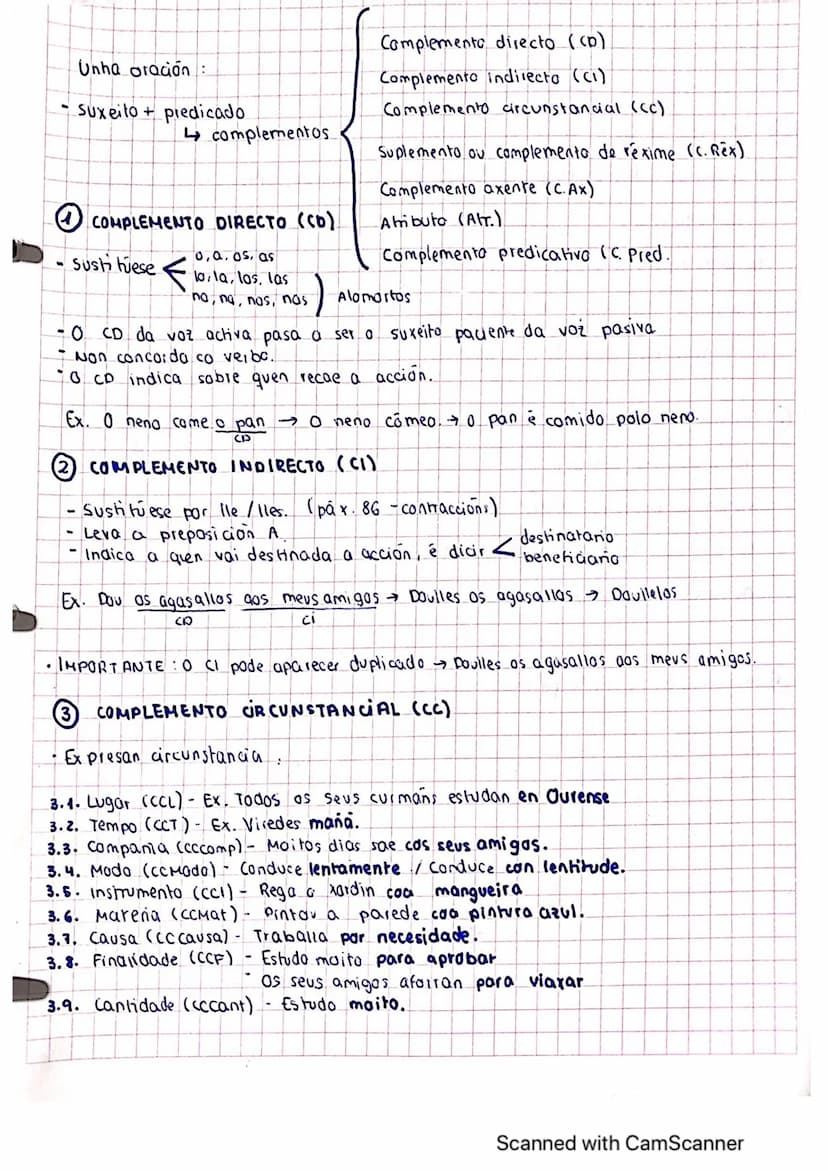 Unha oración :
- suxeito + predicado
↳ complementos
Complemento directo (CD)
Complemento indirecto (CI)
Complemento circunstancial (CC)
Suplemento ou complemento de réxime (C. Réx)
Complemento axente (C. Ax)
Atributo (Atr.)
Complemento predicativo (C. Pred.
① COMPLEMENTO DIRECTO (CD)
- Sustitúese
o, a, os, as
lo, la, los, las
no, na, nos, nas
Alomorfos
- O CD da voz activa pasa a ser o suxeito paciente da voz pasiva
- Non concorda co verbo.
- O CD indica sobre quen recae a acción.
Ex. O neno come o pan → O neno cómeo. → O pan é comido polo neno.
CD
② COMPLEMENTO INDIRECTO (CI)
- Sustitúese por lle / lles. (páx. 86 - contraccións)
- Leva a preposición A.
- Indica a quen vai destinada a acción, é dicir
destinatario
beneficiario
Ex. Dou os agasallos aos meus amigos → Doulles os agasallos → Doullelos
CD
CI
• IMPORTANTE : O CI pode aparecer duplicado → Doulles os agasallos aos meus amigos.
③ COMPLEMENTO CIRCUNSTANCIAL (CC)
· Expresan circunstancia :
3.1. Lugar (CCL) - Ex. Todos os seus curmáns estudan en Ourense
3.2. Tempo (CCT) - Ex. Viredes mañá.
3.3. Compañía (CCcomp) - Moitos días sae cos seus amigos.
3.4. Modo (CCModo) - Conduce lentamente / Conduce con lentitude.
3.5. Instrumento (CCI) - Rega o xardín coa mangueira
3.6. Materia (CCMat) - Pintou a parede coa pintura azul.
3.7. Causa (CCcausa) - Traballa por necesidade.
3.8. Finalidade (CCF) - Estudo moito para aprobar
- Os seus amigos aforran para viaxar
3.9. Cantidade (CCcant) - Estudo moito.
Scanned with CamScanner